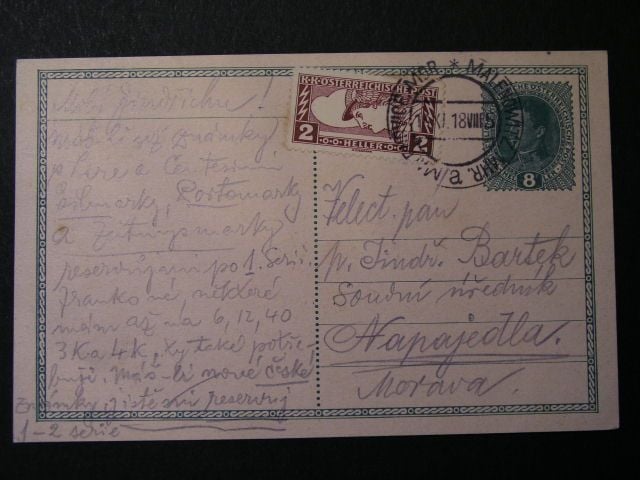 Milý Jindřichu!
máš-li již známky
v Lire a Centesimi
Portomarky
a Zeitungsmarky
po 1. Serii.
Franko né, některé
mám až na 6, 12, 40
3 K a 4 K, ty také potře-
buji. Máš-li nové české
známky, reservuj
1-2 serie
K.K. ÖSTERREICHISCHE POST
2 HELLER 2
MALENOWITZ
XI 18 VIII
8
Velect. pan
p. Jindř. Bartek
Soudní úředník
Napajedla.
Morava.